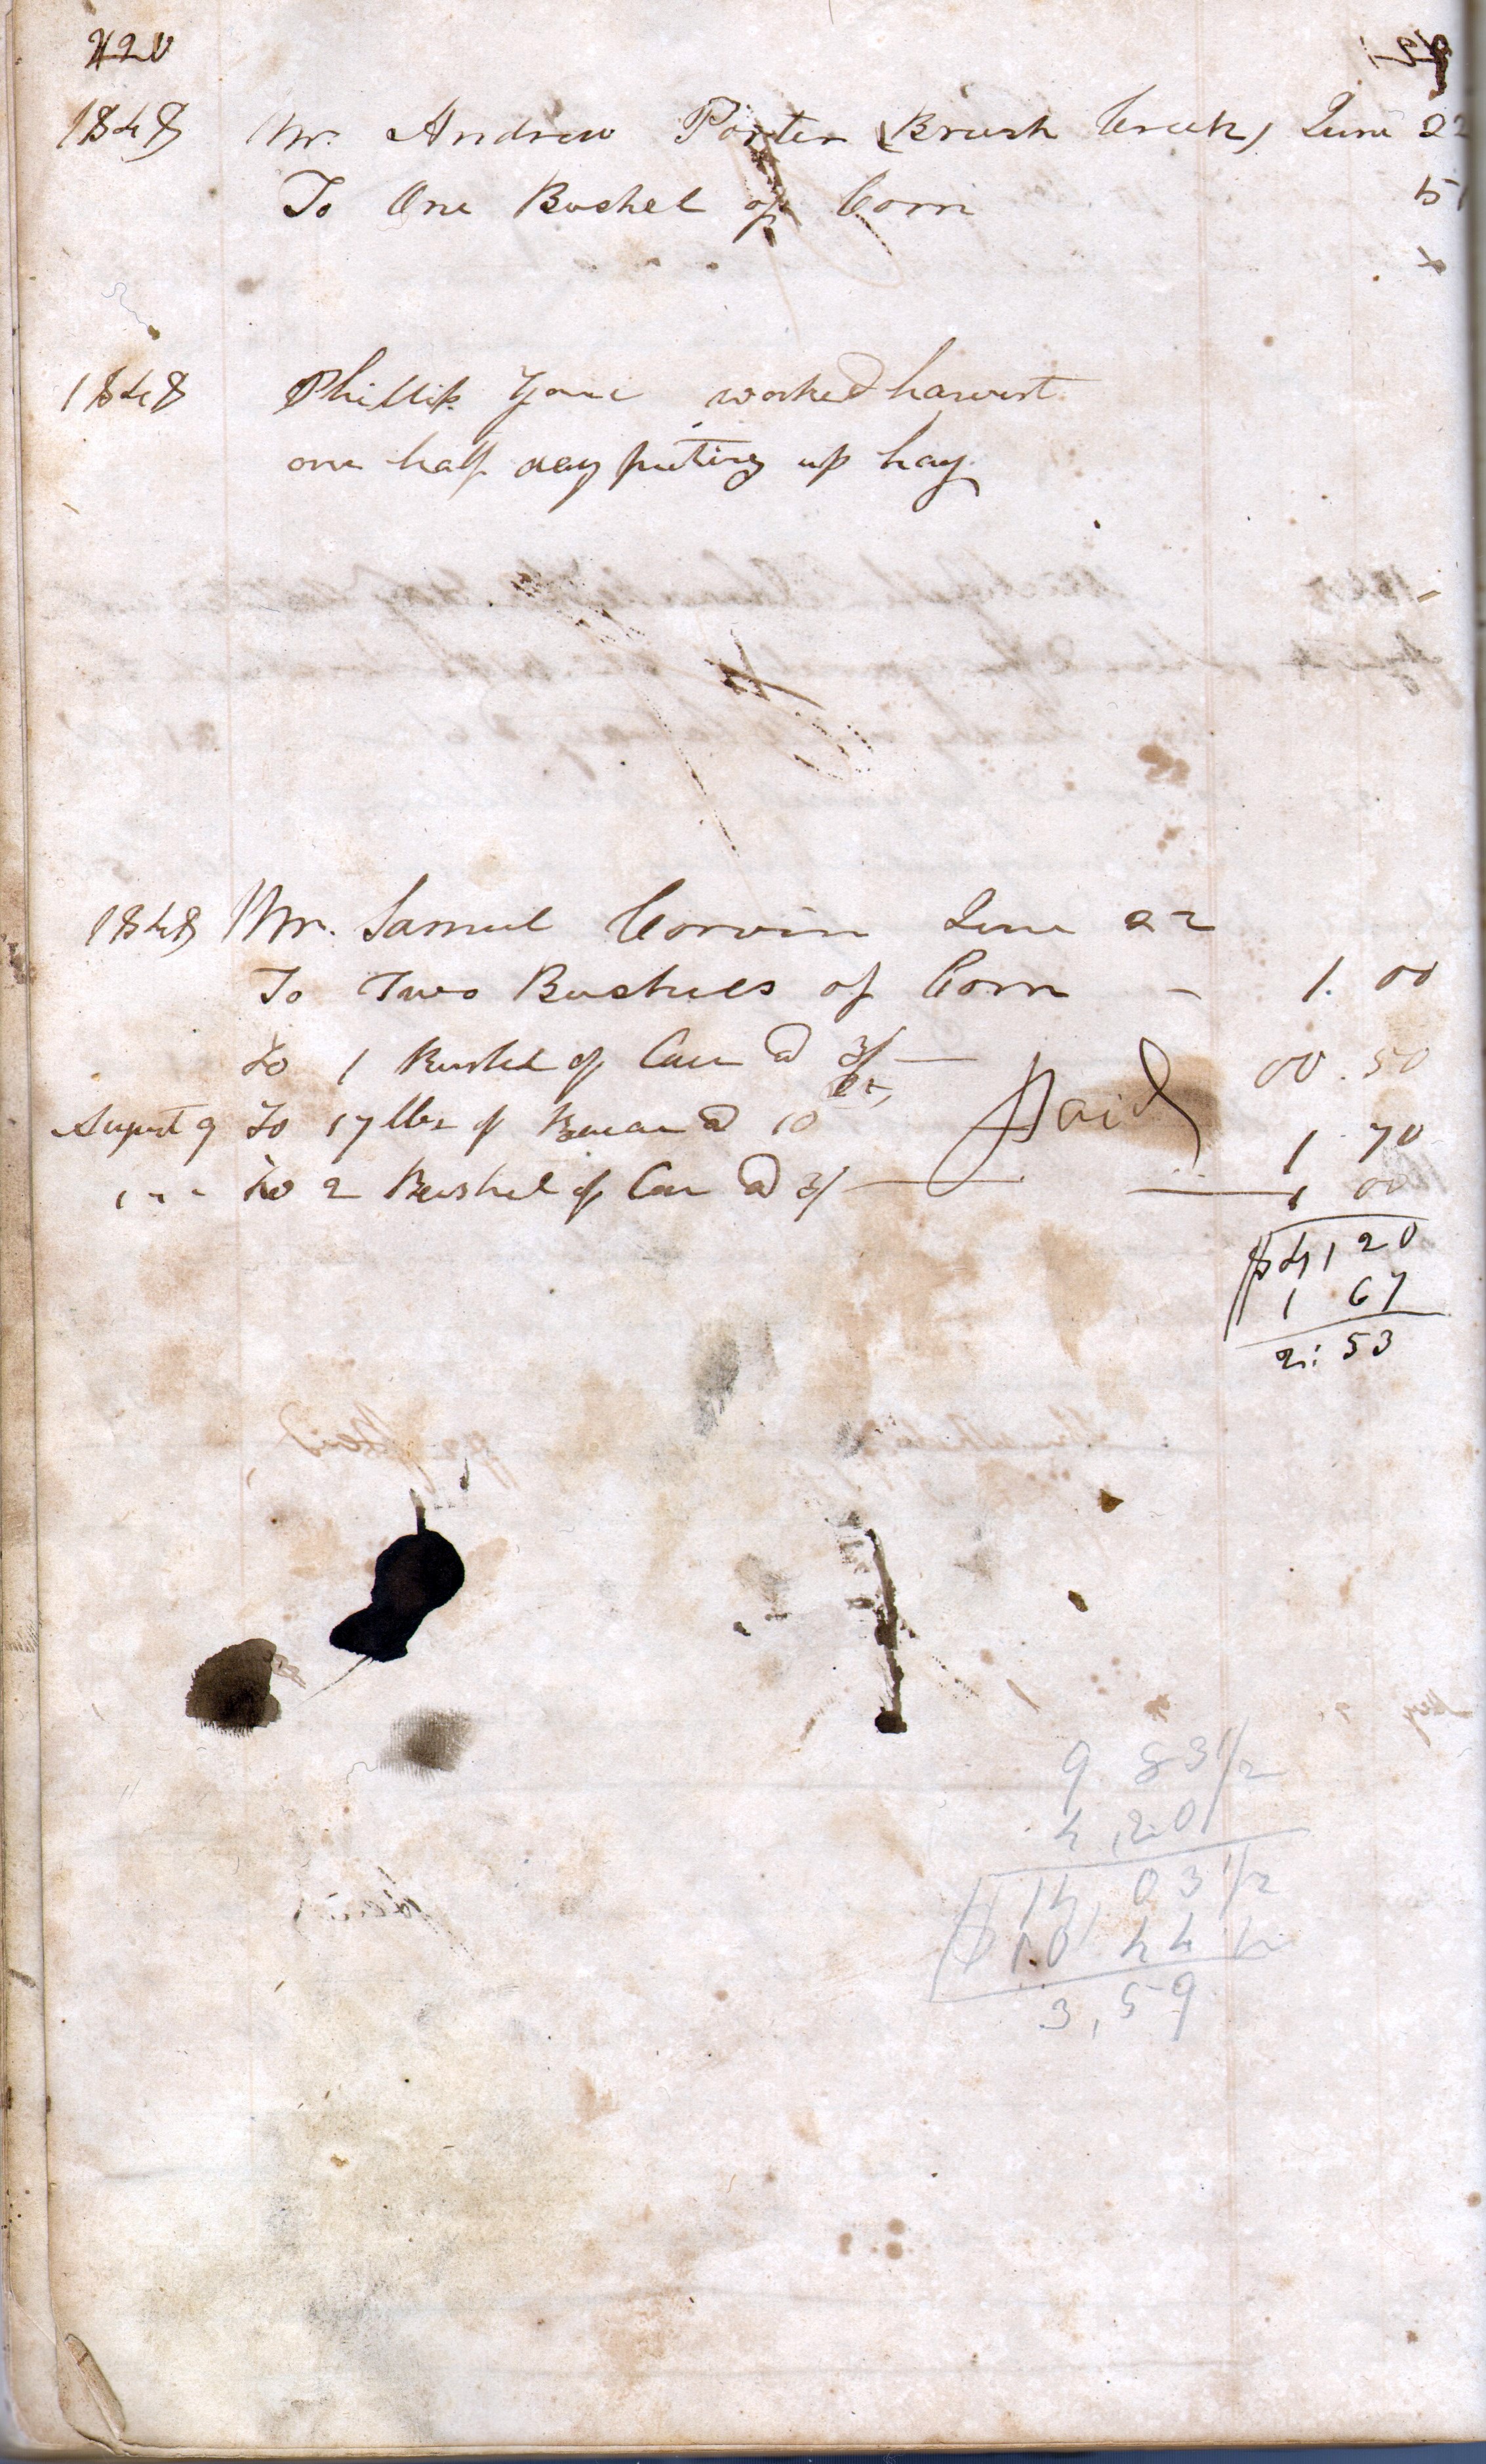 220
1848 Mr. Andrew Porter (Brush Creek) June 22
To One Bushel of Corn 5
1848 Phillip worked harvest
one half day puting up hay
1848 Mr. Samuel Corwin June 22
To Two Bushels of Corn - 1. 00
To 1 Bushel of Corn @ 3/ — 00. 50
August 9 To 17 lbs of Bacon @ 10 cts, Paid 1. 70
" " To 2 Bushel of Corn @ 3/ — 1 00
$4,20
1 67
2: 53
9 83 1/2
4,20
$14,03 1/2
10 44 1/2
3,59